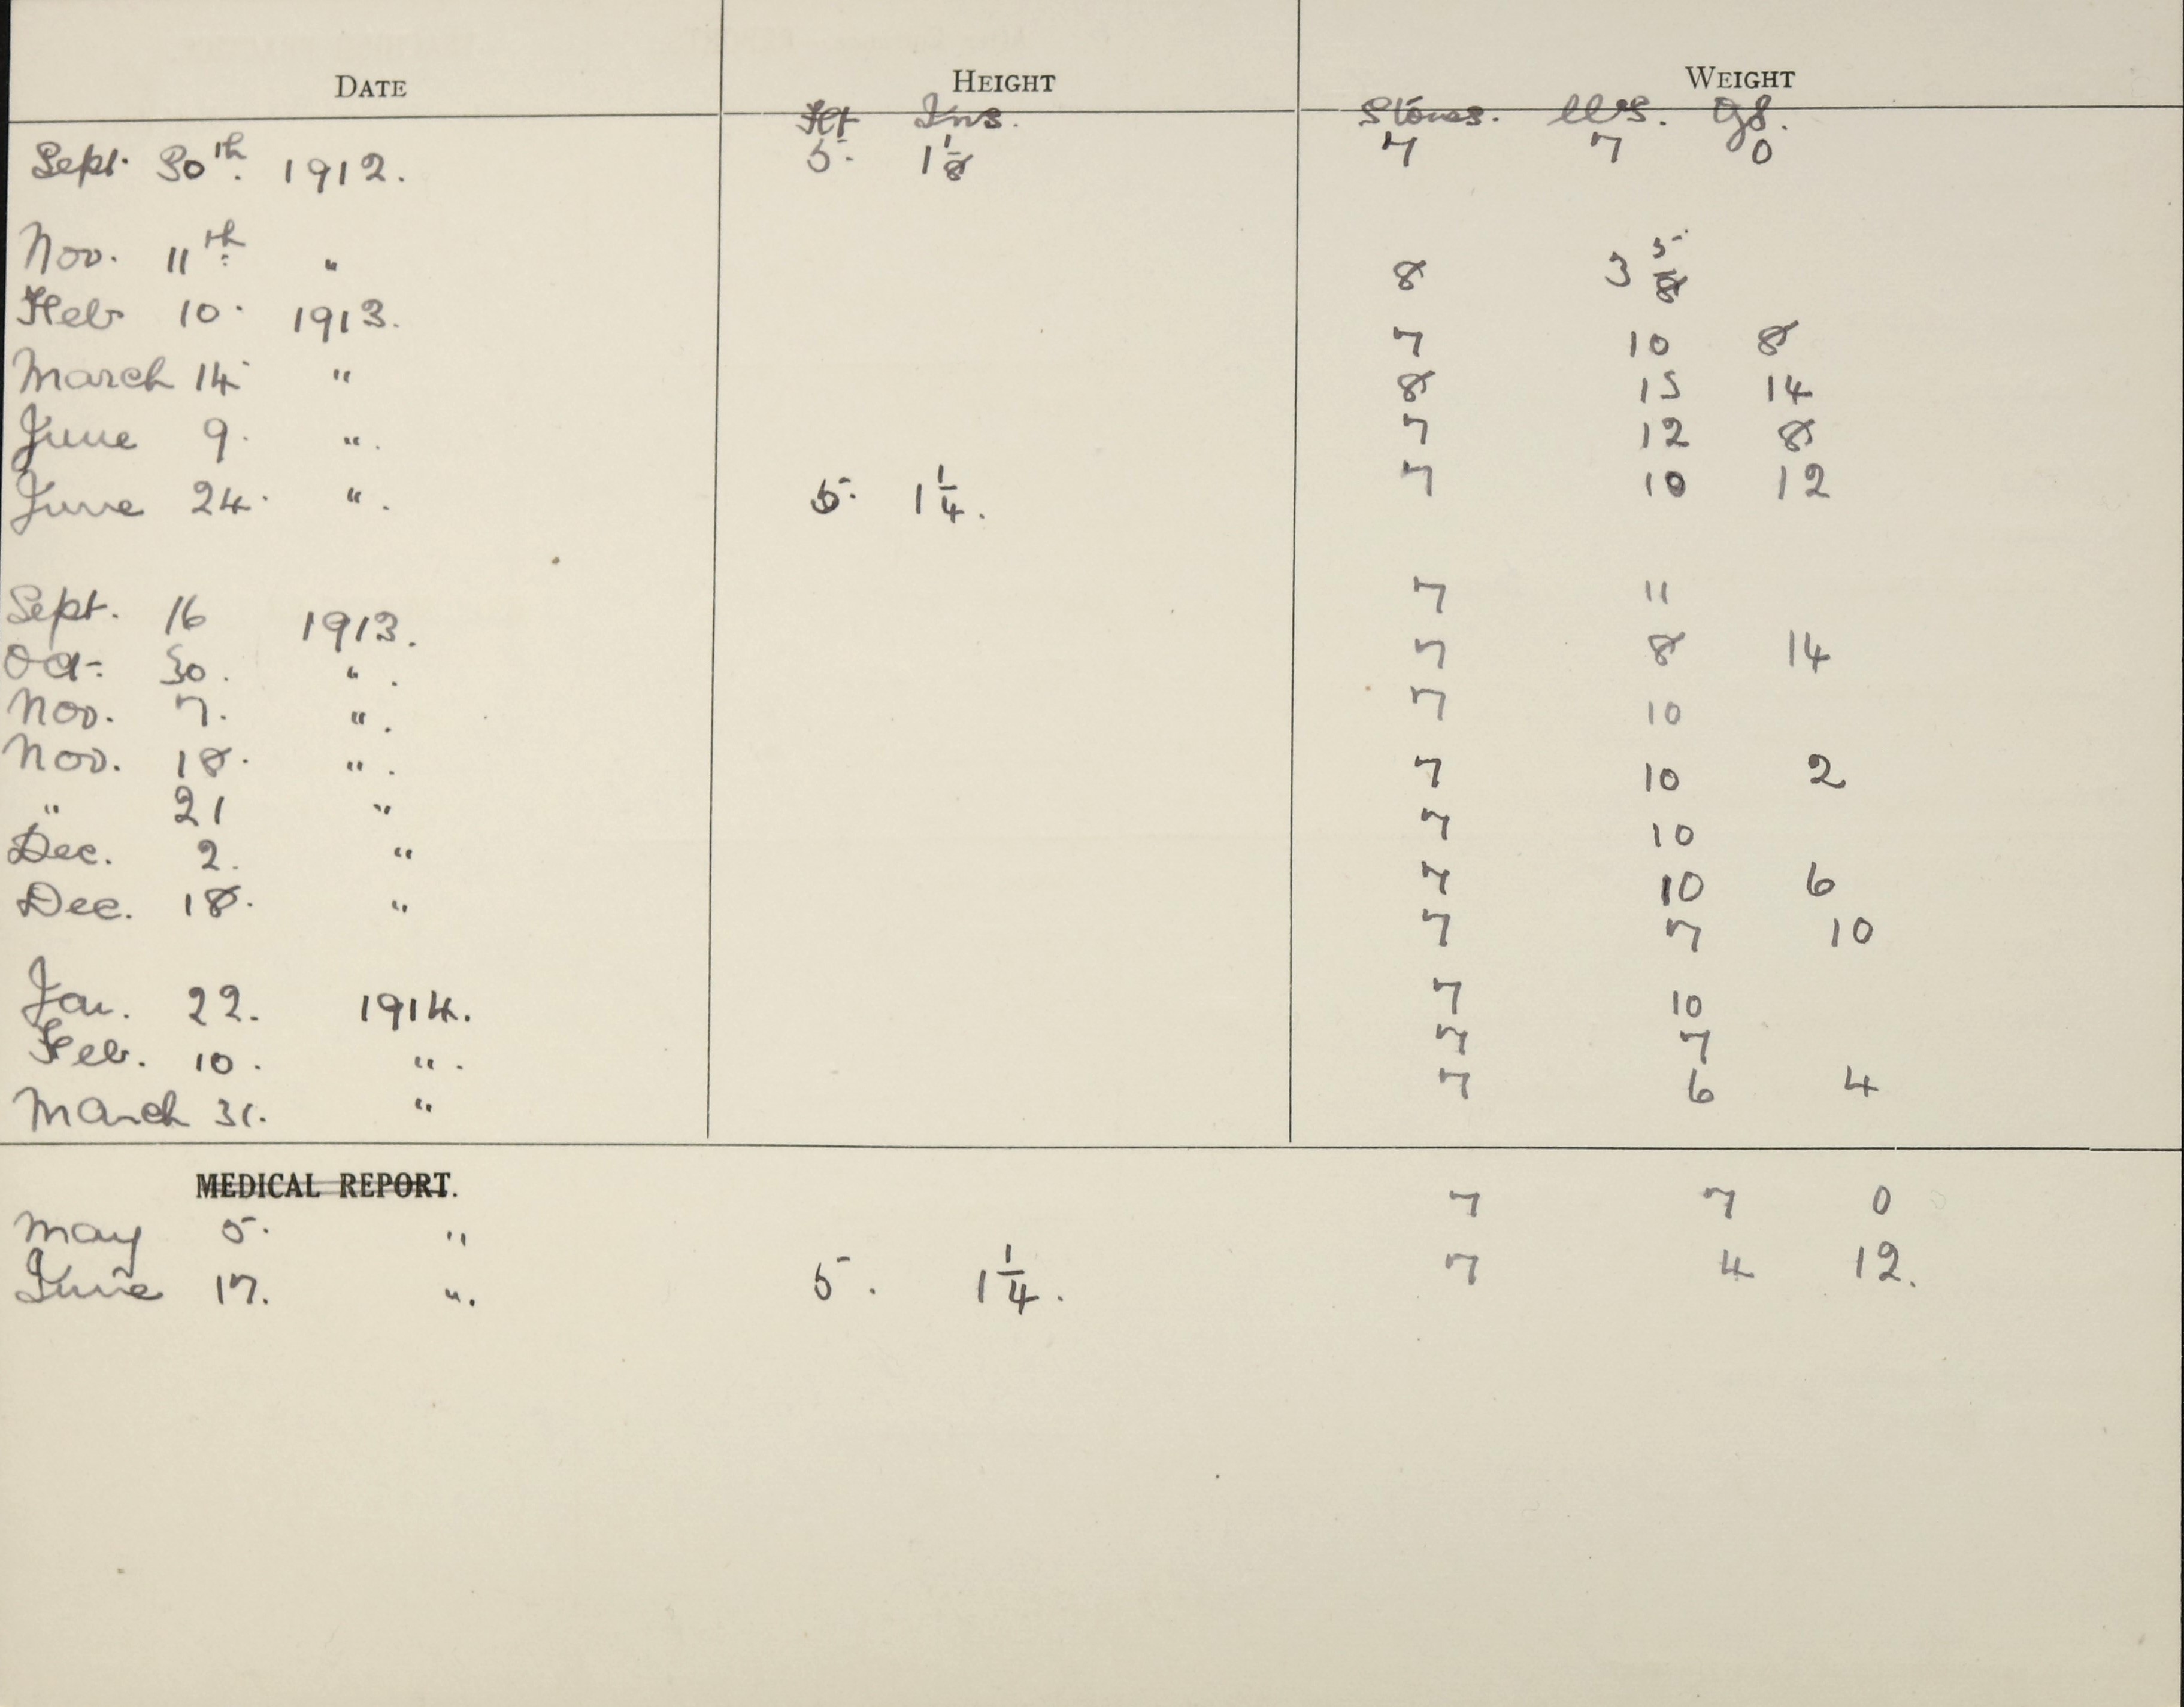 DATE HEIGHT WEIGHT
Ft Ins. Stones. lbs. ozs.
Sept. 30th. 1912. 5. 1 1/8 7 7 0
Nov. 11th. " 8 3 5/8
Feb 10. 1913. 7 10 8
March 14 " 8 13 14
June 9. ". 7 12 8
June 24. ". 5. 1 1/4. 7 10 12
Sept. 16 1913. 7 11
Oct. 30. ". 7 8 14
Nov. 7. ". 7 10
Nov. 18. ". 7 10 2
" 21 " 7 10
Dec. 2. " 7 10 6
Dec. 18. " 7 7 10
Jan. 22. 1914. 7 10
Feb. 10. ". 7 7
March 31. " 7 6 4
MEDICAL REPORT.
May 5. " 7 7 0
June 17. ". 5. 1 1/4. 7 4 12.